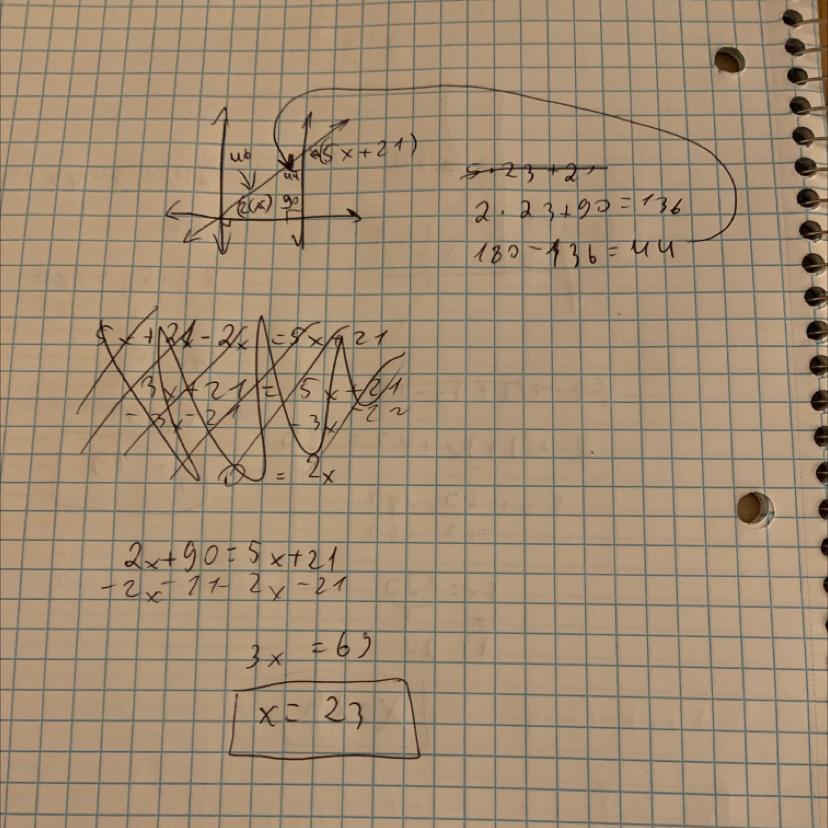 46
44
(5x+21)
2(x)
90
5·23+21
2·23+90=136
180-136=44
5x+21-2x=5x+21
3x+21=5x+21
-3x-21 -3x-21
0 = 2x
2x+90=5x+21
-2x-21-2x-21
3x =69
x= 23